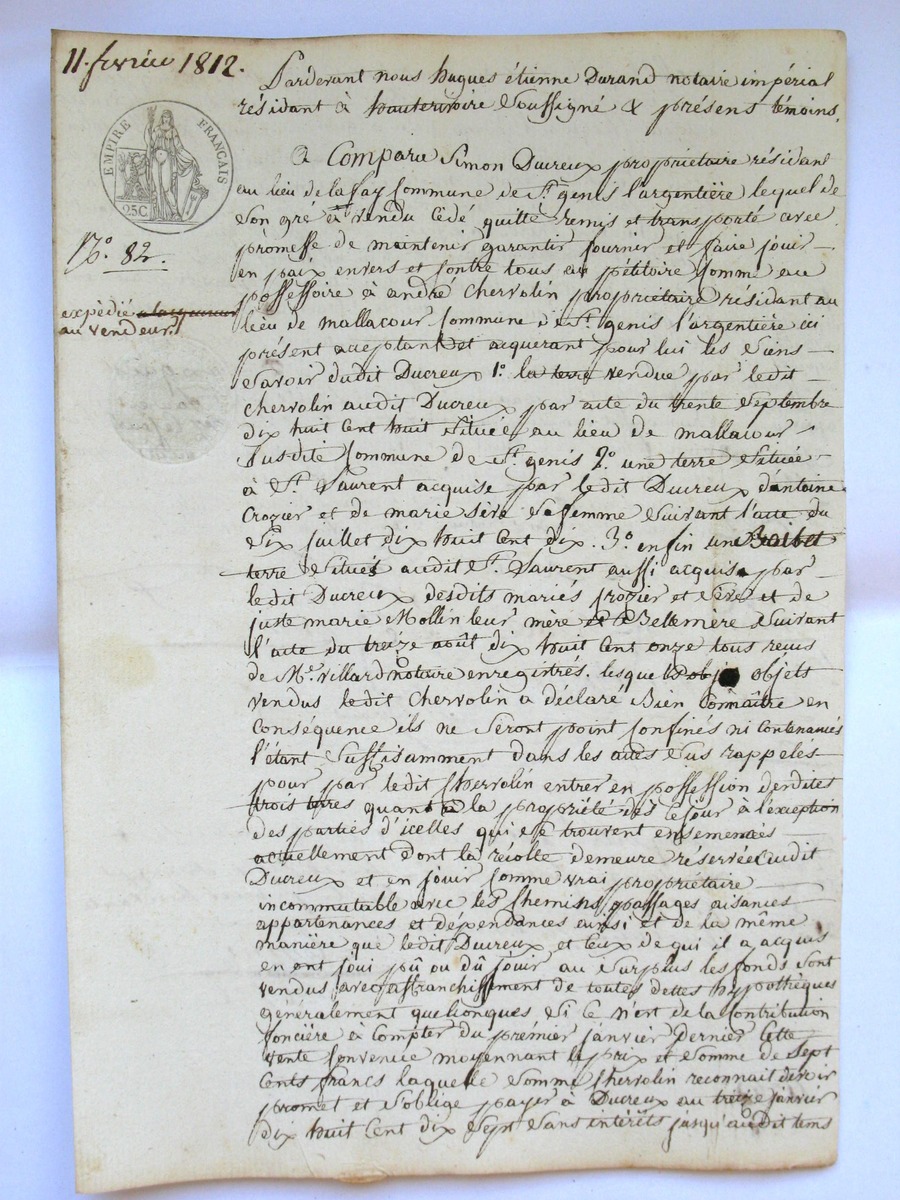 11. fevrier 1812.
Pardevant nous hugues étienne Durand notaire impérial
résidant à hauterivoire Soussigné & présens témoins.
EMPIRE FRANÇAIS
25C
N.° 82.
expédié
au vendeur
A Comparu Simon Ducreux propriétaire résidant
au lieu de lafay Commune de St. genis l'argentière lequel de
Son gré à vendu cédé quitté remis et transporté avec
promesse de maintenir garantir fournir et faire jouir
en paix envers et contre tous au pétitoire Comme au
possessoire à andré Chervolin propriétaire résidant au
lieu de mallacour Commune de St. genis l'argentière ici
présent acceptant et acquerant pour lui les Siens
Savoir dudit Ducreux 1.° la terre vendue par ledit
chervolin audit Ducreux par acte du trente Septembre
dix huit Cent huit Située au lieu de mallacour
Susdite Commune de St. genis 2.° une terre Située
à St. Laurent acquise par ledit Ducreux d'antoine
Crozier et de marie Sève Sa femme Suivant l'acte du
Six juillet dix huit Cent dix. 3.° enfin une
terre Située audit St. Laurent aussi acquise par
ledit Ducreux desdits mariés Crozier et Sève et de
juste marie Mollin leur mère et Bellemère Suivant
l'acte du treize août dix huit Cent onze tous reçus
de Me. Villard notaire enregistrés. lesquels objets
vendus ledit Chervolin a déclaré Bien Connaître en
Conséquence ils ne Seront point Confinés ni Contenancés
l'étant Suffisamment dans les actes Sus rappelés
pour par ledit Chervolin entrer en possession desdites
trois terres quant à la propriété dès Cejour à l'exception
des parties d'icelles qui se trouvent ensemencés
actuellement dont la récolte demeure réservée audit
Ducreux et en jouir Comme vrai propriétaire
incommutable avec les Chemins passages aisances
appartenances et dépendances ainsi et de la même
manière que ledit Ducreux et Ceux de qui il a acquis
en ont joui pû ou dû jouir au Surplus les fonds Sont
vendus avec affranchissement de toutes dettes hypothèques
généralement quelconques Si Ce n'est de la Contribution
foncière à Compter du prémier janvier Dernier Cette
vente Convenue moyennant le prix et Somme de Sept
Cents francs laquelle Somme Chervolin reconnait devoir
promet et S'oblige payer à Ducreux au treize janvier
dix huit Cent dix Sept Sans intérêts jusqu'audit tems